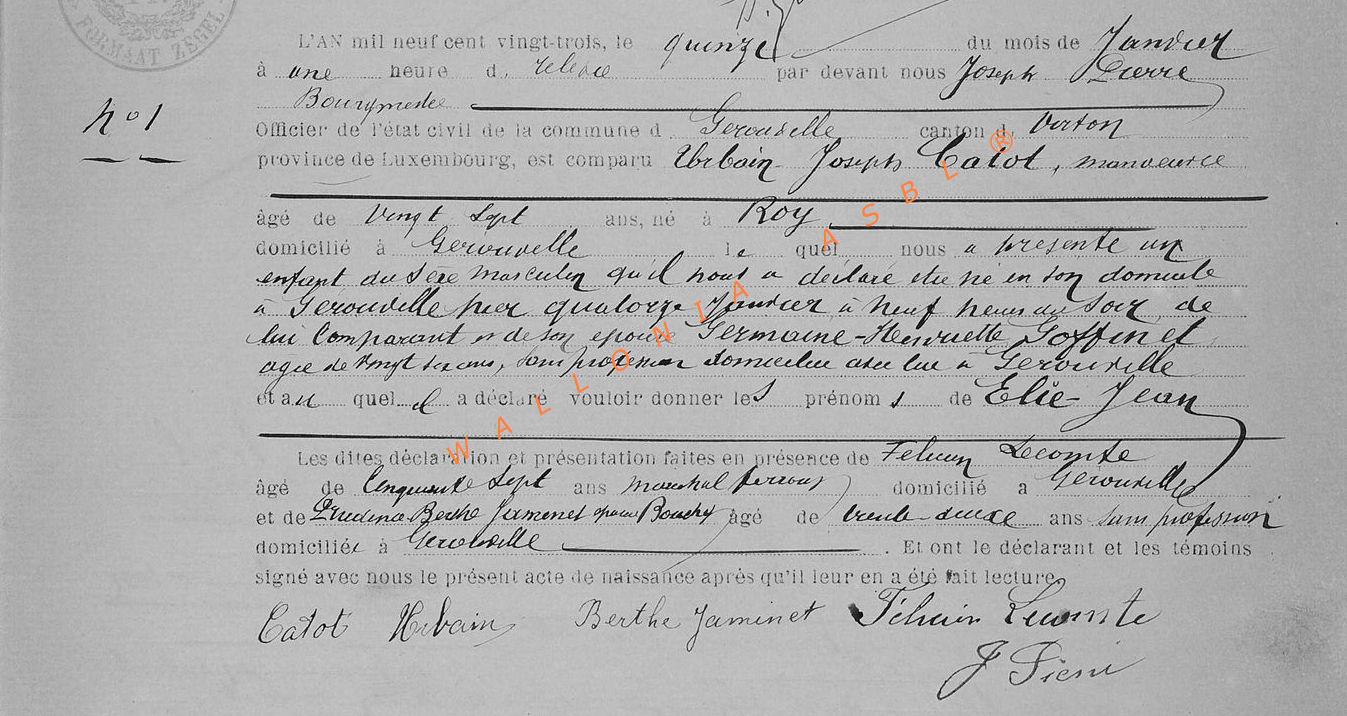 FORMAAT ZEGEL
L'AN mil neuf cent vingt-trois, le quinze du mois de Janvier
à une heure d. relevée par devant nous Joseph Pierre
Bourgmestre
N° 1
Officier de l'état civil de la commune d Gerouville canton d. Virton
province de Luxembourg, est comparu Urbain Joseph Catot, manoeuvre
âgé de vingt sept ans, né à Roy
domicilié à Gerouville le quel nous a présenté un
enfant du sexe masculin qu'il nous a déclaré être né en son domicile
à Gerouville hier quatorze Janvier à neuf heures du soir, de
lui Comparant et de son epouse Germaine-Henriette Goffinet
agée de vingt six ans, sans profession domiciliée avec lui à Gerouville
et au quel il a déclaré vouloir donner les prénoms de Elie-Jean
Les dites déclaration et présentation faites en présence de Felicien Lecomte
âgé de Cinquante Sept ans marechal ferrant domicilié a Gerouville
et de Prudence Berthe Jaminet epouse Bouchy âgé de trente-deux ans sans profession
domiciliée à Gerouville. Et ont le déclarant et les témoins
signé avec nous le présent acte de naissance après qu'il leur en a été fait lecture
Catot Urbain Berthe Jaminet Félicien Lecomte
J Pierre
WALLONIA ASBL ®